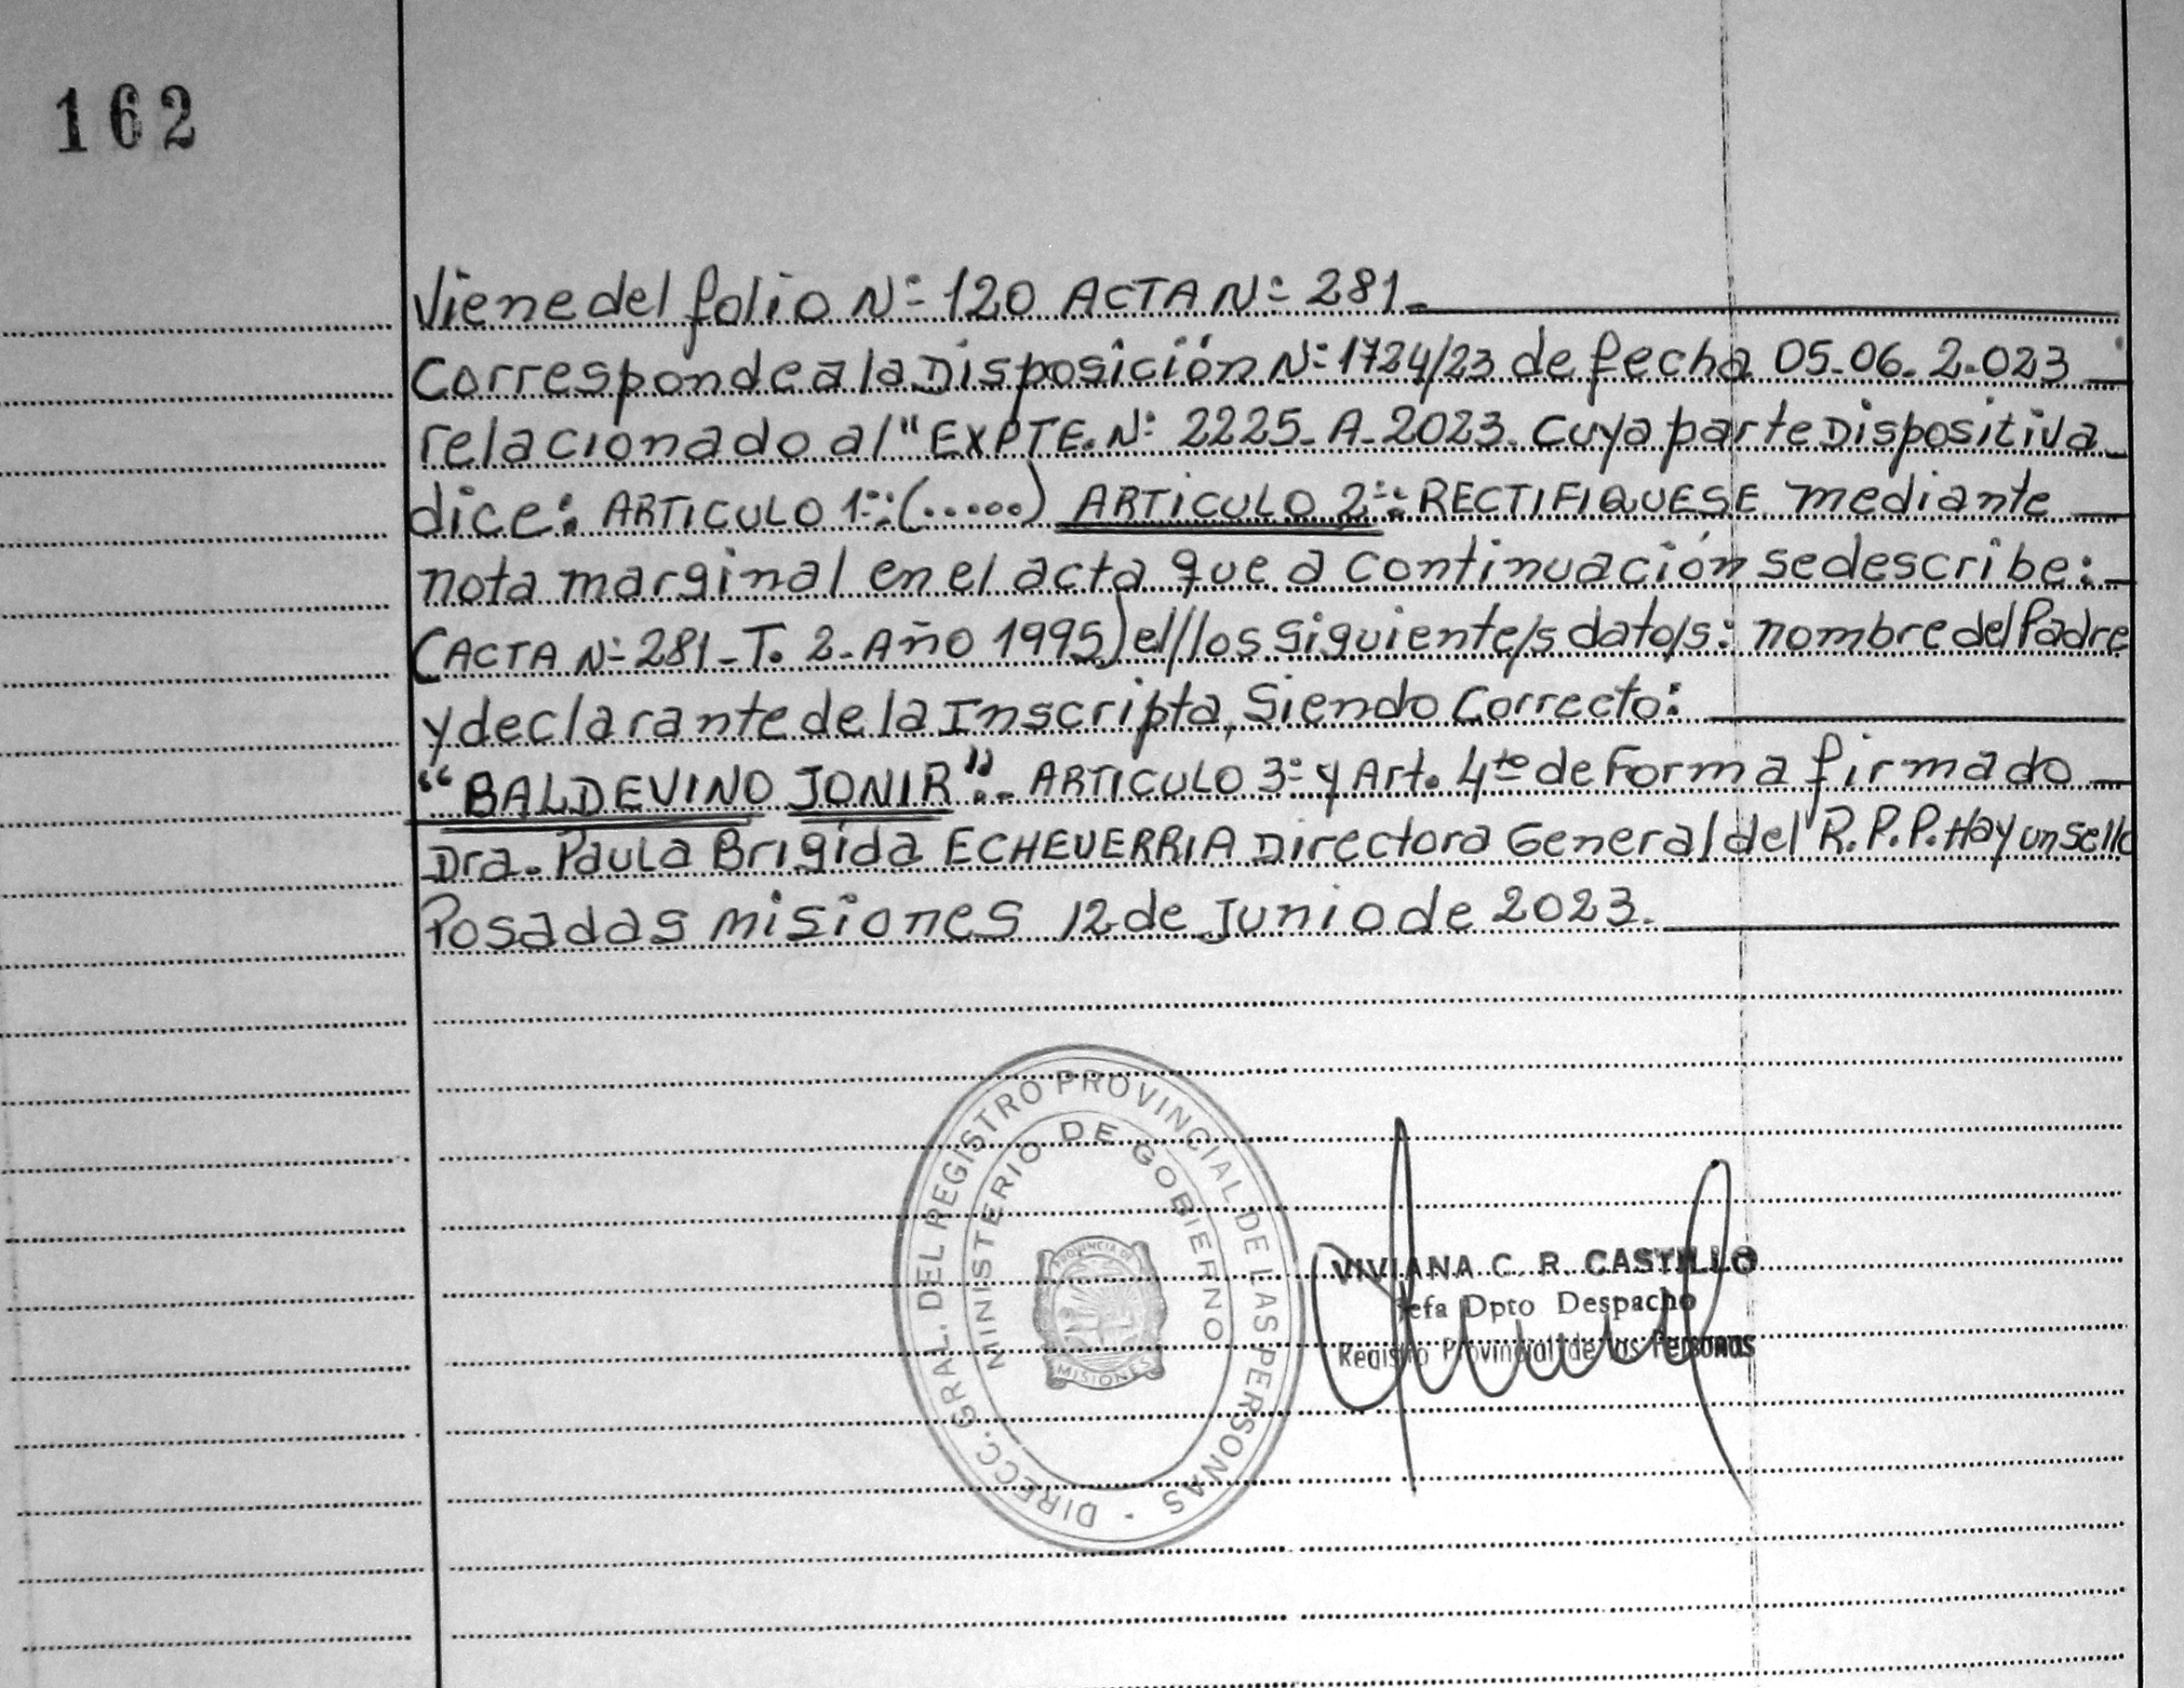 162
Viene del folio Nº 120 ACTA Nº 281.
Corresponde a la Disposición Nº 1724/23 de fecha 05-06-2.023
relacionado al "EXPTE. Nº 2225-A-2023. Cuya parte Dispositiva
dice: ARTICULO 1º: (.....) ARTICULO 2º: RECTIFIQUESE mediante
nota marginal en el acta que a continuación se describe:
(ACTA Nº 281-T. 2-Año 1995) el/los siguiente/s dato/s: nombre del Padre
y declarante de la Inscripta, Siendo Correcto:
"BALDEVINO JONIR".- ARTICULO 3º y Art. 4to de Forma firmado
Dra. Paula Brigida ECHEVERRIA Directora General del R.P.P. Hay un sello
Posadas misiones 12 de Junio de 2023.
DIRECC. GRAL. DEL REGISTRO PROVINCIAL DE LAS PERSONAS -
MINISTERIO DE GOBIERNO
PROVINCIA DE
MISIONES
VIVIANA C. R. CASTILLO
Jefa Dpto Despacho
Registro Provincial de las Personas